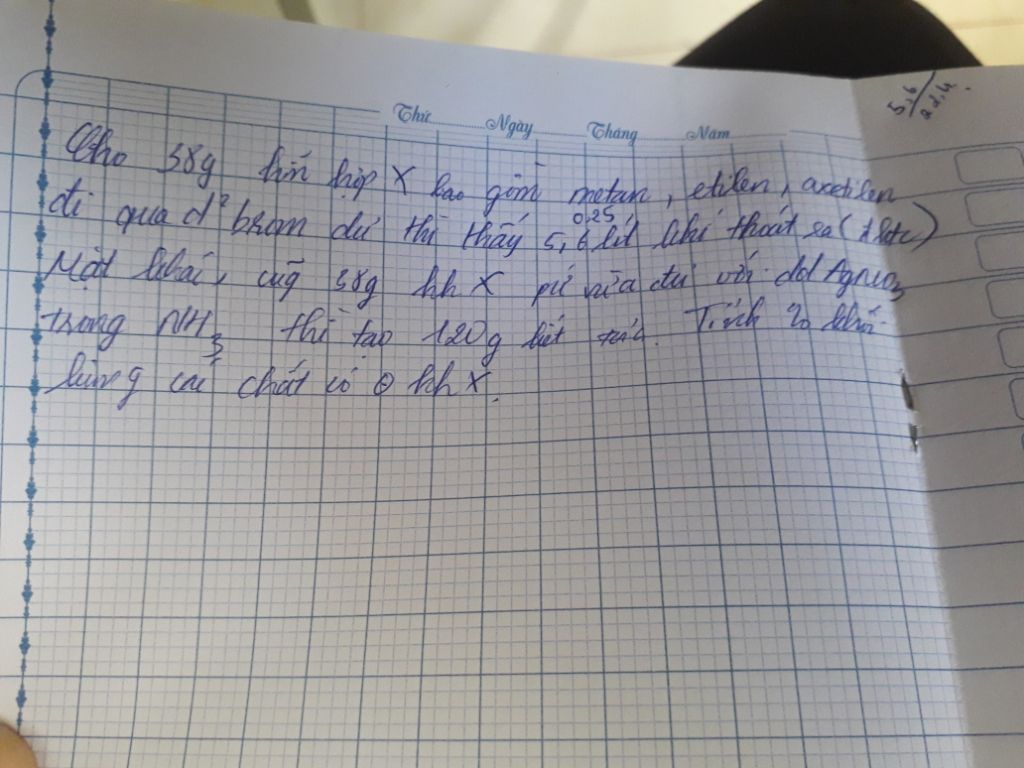 5,6
22,4.
Thứ Ngày Tháng Năm
Cho 38g hỗn hợp X bao gồm metan, etilen, axetilen
đi qua d² brom dư thì thấy 5,6 lít khí thoát ra (đktc)
0,25
Mặt khác, cũg 38g hh X pứ vừa đủ với dd AgNO3
trong NH3 thì tạo 120g kết tủa. Tính % khối
lượng các chất có hh X.